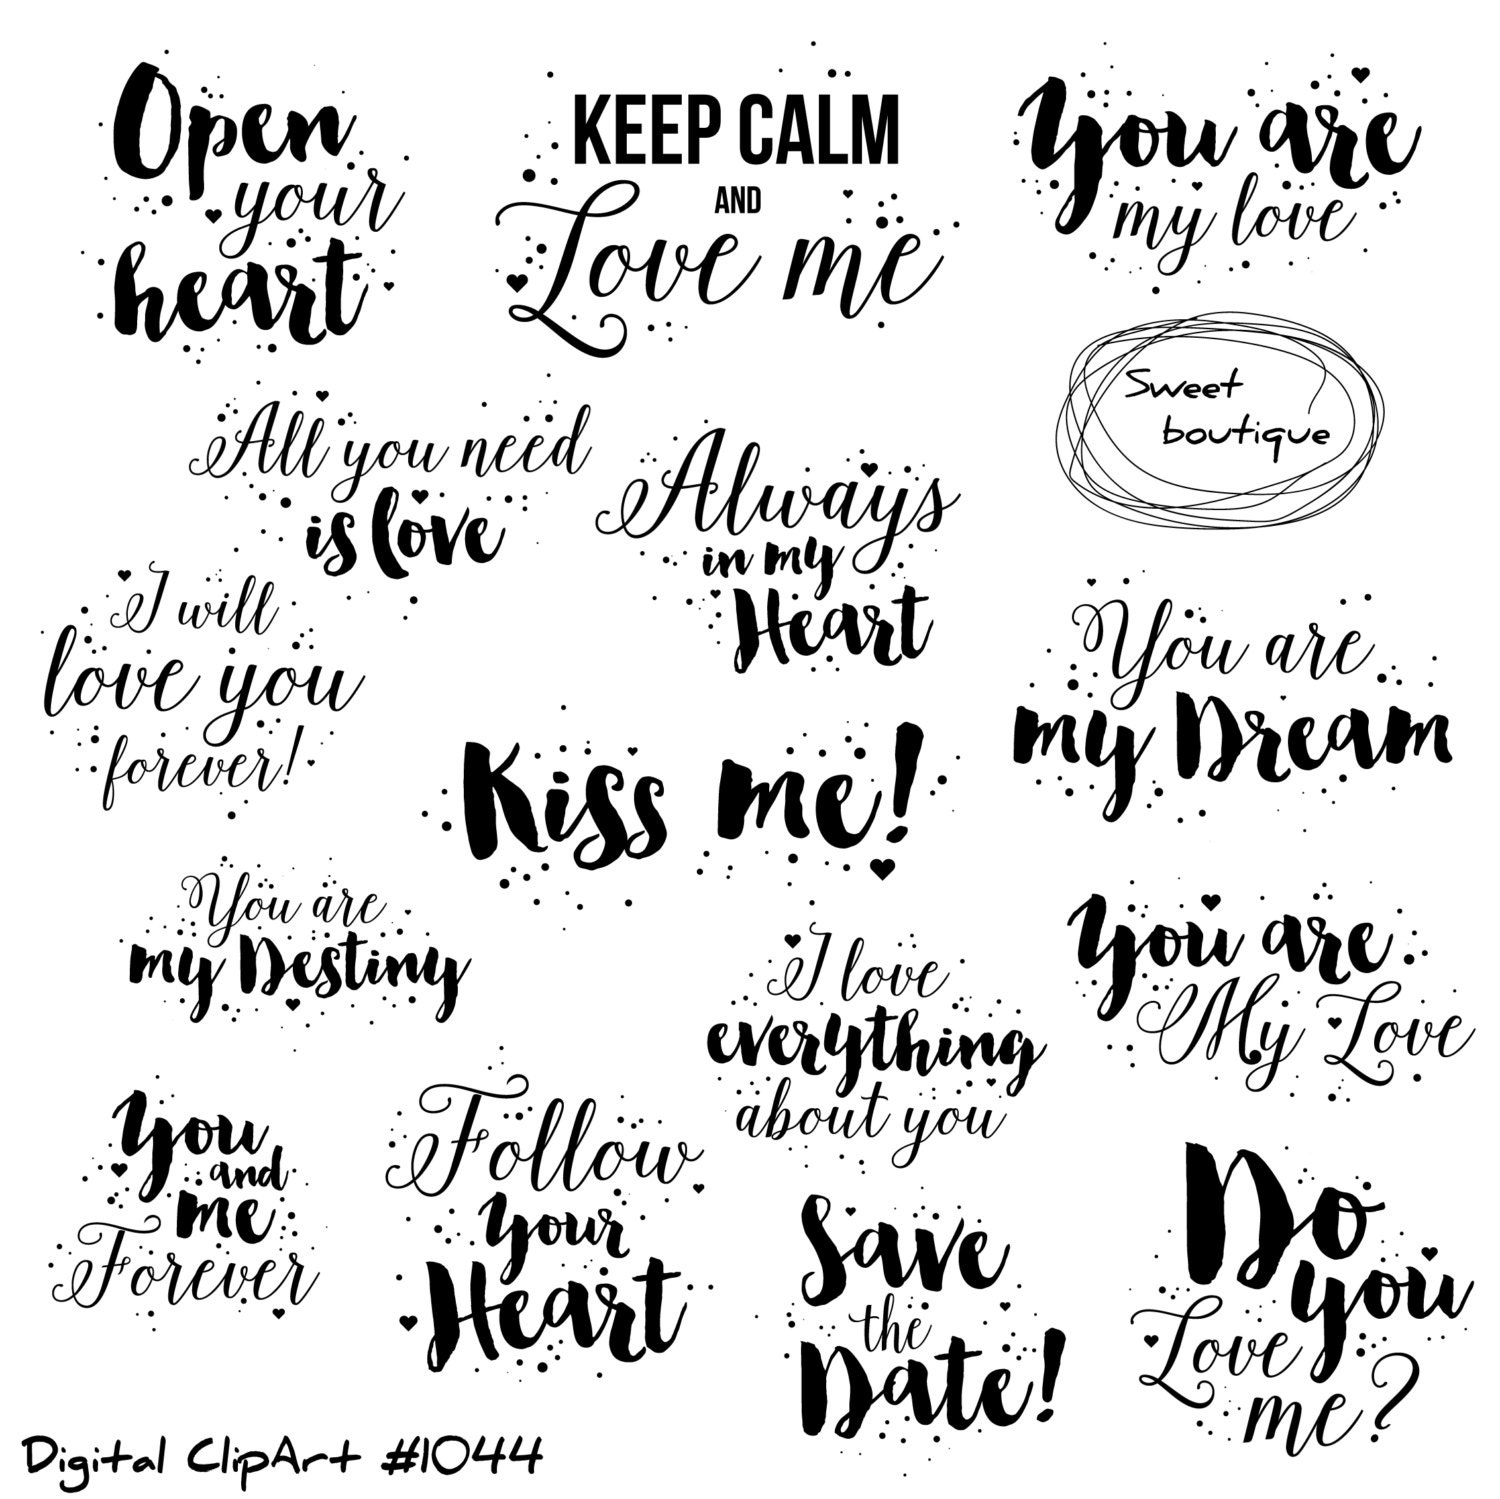 Open
your
heart
KEEP CALM
AND
Love me
You are
my love
Sweet
boutique
All you need
is love
Always
in my
Heart
I will
love you
forever!
You are
my Dream
Kiss me!
You are
my Destiny
I love
everything
about you
You are
My Love
You
and
me
Forever
Follow
Your
Heart
Save
the
Date!
Do
you
Love
me?
Digital ClipArt #1044